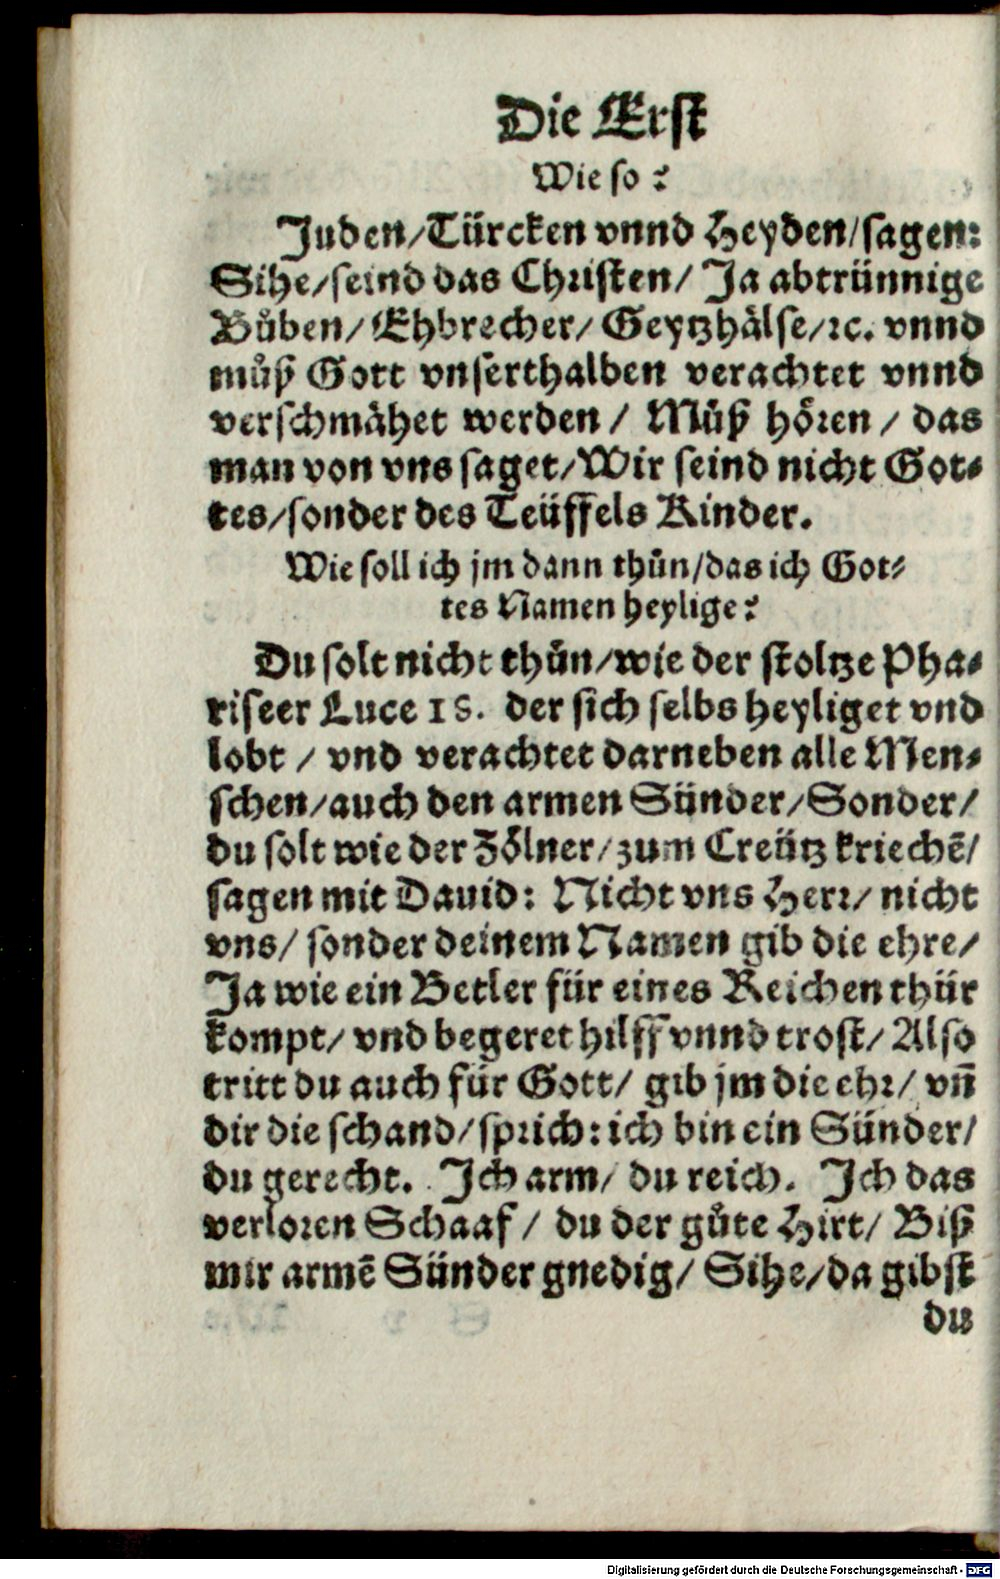 Die Erst
Wie so?
Juden/Türcken vnnd Heyden/sagen:
Sihe/seind das Christen/ Ja abtrünnige
Bůben/ Ehbrecher/ Geytzhälse/ꝛc. vnnd
můß Gott vnserthalben verachtet vnnd
verschmähet werden / Můß hören / das
man von vns saget/Wir seind nicht Got⸗
tes/sonder des Teüffels Kinder.
Wie soll ich jm dann thůn/das ich Got⸗
tes Namen heylige?
Du solt nicht thůn/wie der stoltze Pha⸗
riseer Luce 18. der sich selbs heyliget vnd
lobt / vnd verachtet darneben alle Men⸗
schen/auch den armen Sünder/Sonder/
du solt wie der Zölner/zum Creütz kriechē/
sagen mit Dauid: Nicht vns Herr/ nicht
vns/ sonder deinem Namen gib die ehre/
Ja wie ein Betler für eines Reichen thür
kompt/ vnd begeret hilff vnnd trost/ Also
tritt du auch für Gott/ gib jm die ehr/ vñ
dir die schand/sprich: ich bin ein Sünder/
du gerecht. Ich arm/ du reich. Ich das
verloren Schaaf / du der gůte Hirt/ Biß
mir armē Sünder gnedig/ Sihe/da gibst
du
Digitalisierung gefördert durch die Deutsche Forschungsgemeinschaft - DFG